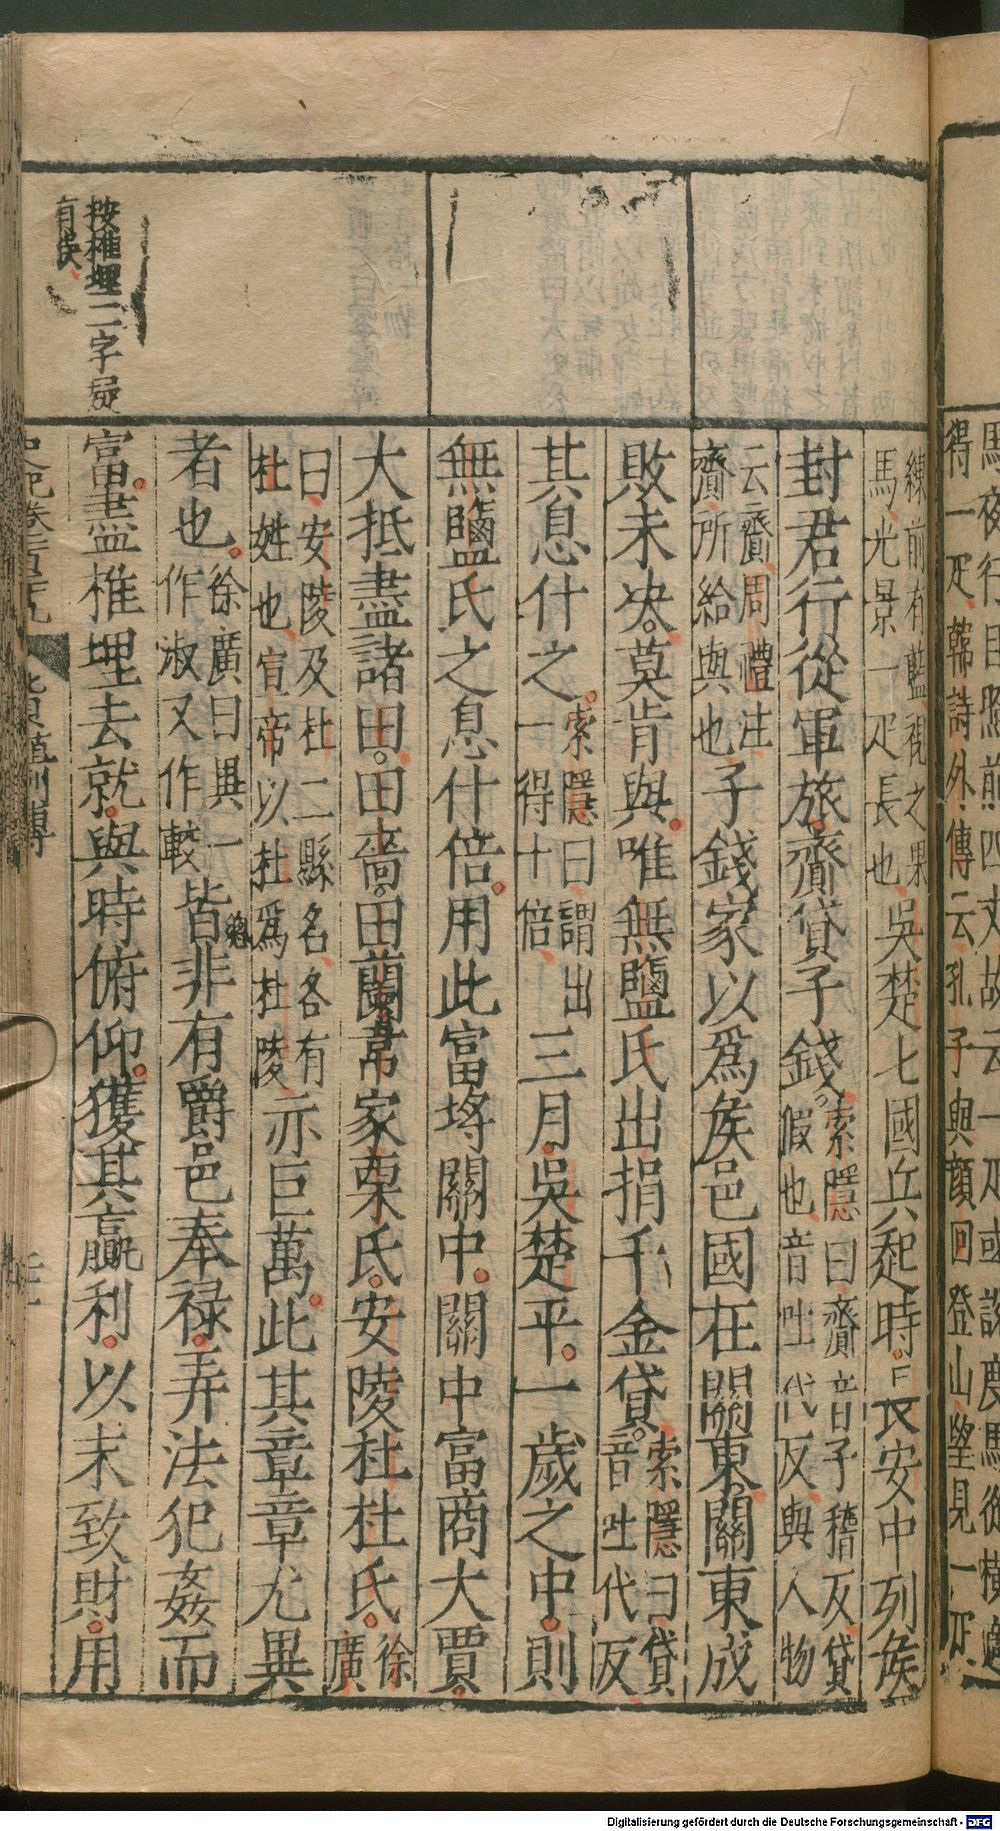 馬夜行目照前四丈故云一疋或說度馬從橫適
得一疋韓詩外傳云孔子與顏回登山望見一疋
練前有藍視之果
馬光景一疋長也
吳楚七國兵起時長安中列矦
封君行從軍旅齎貸子錢
索隱曰齎音子稽反貸
假也音吐代反與人物
云齎周禮注
齎所給與也
子錢家以爲矦邑國在關東關東成
敗未决莫肯與唯無鹽氏出捐千金貸
索隱曰貸
音吐代反
其息什之
索隱曰謂出
一得十倍
三月吳楚平一歲之中則
無鹽氏之息什倍用此富埓關中關中富商大賈
大抵盡諸田田嗇田蘭韋家栗氏安陵杜杜氏
徐
廣
曰安陵及杜二縣名各有
杜姓也宣帝以杜爲杜陵
亦巨萬此其章章尤異
者也
徐廣曰異一
作淑又作較
皆非有爵邑奉祿弄法犯姦而
按椎埋二字疑
有誤
富盡椎埋去就與時俯仰獲其贏利以末致財用
Digitalisierung gefördert durch die Deutsche Forschungsgemeinschaft - DFG